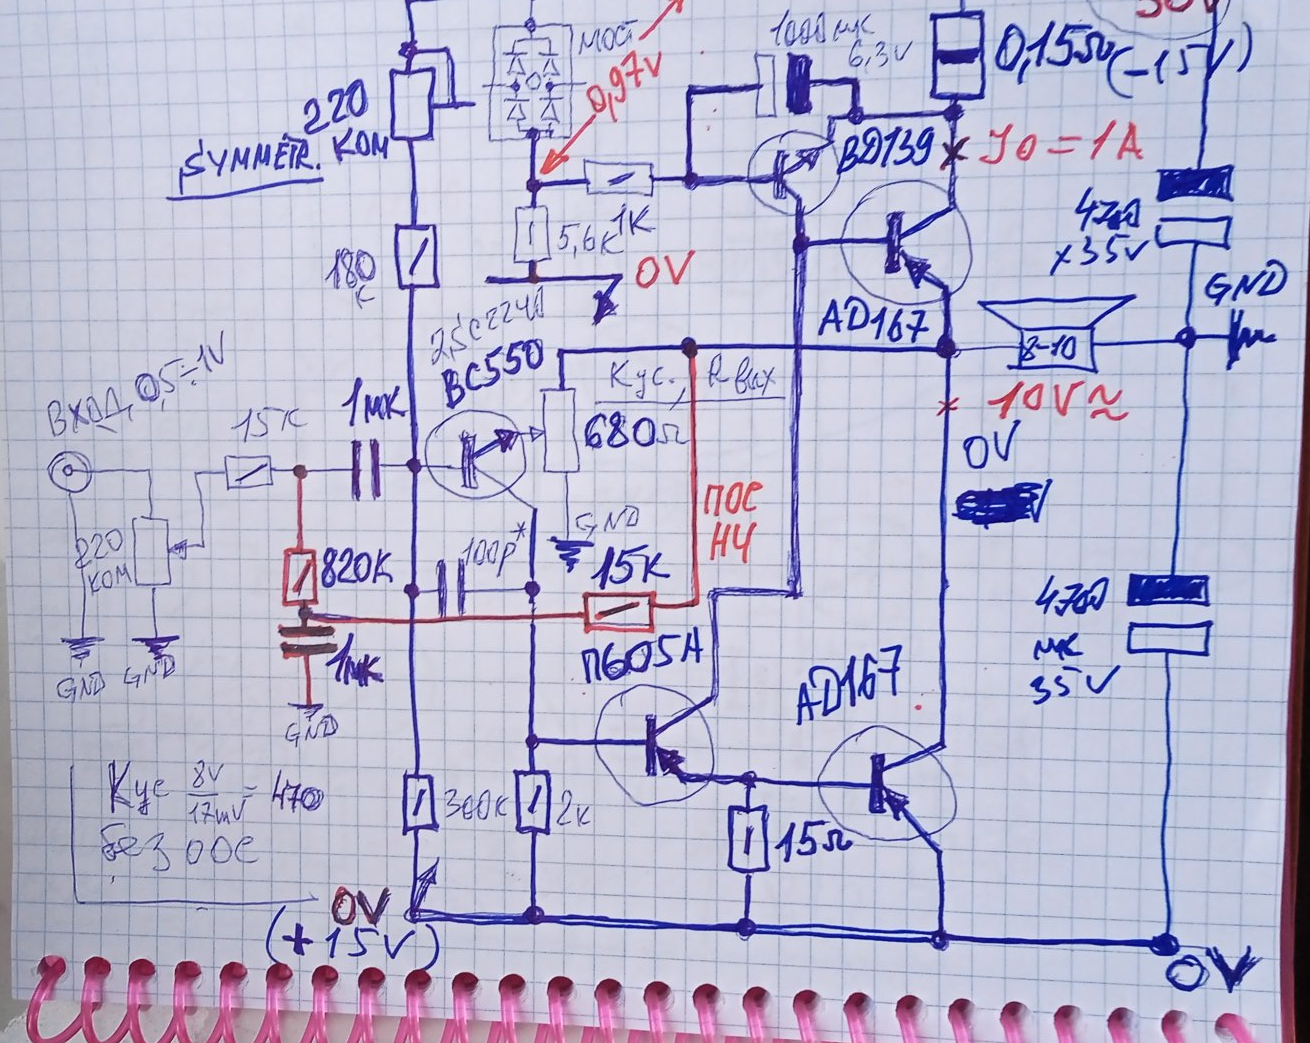 30V
МОСТ
1000мк
6,3V
0,15Ω
(-15V)
0,97V
220
КОМ
SYMMETR.
BD139
Jo = 1A
1K
5,6K
180
K
0V
4700
x35V
GND
AD167
2SC2240
BC550
8-10
Кус., Rвых
680Ω
10V≈
0V
ВХОД, 0,5÷1V
15K
1мк
ПОС
НЧ
GND
220
КОМ
820K
100p*
15K
4700
мк
35V
1мк
П605А
AD167
GND
GND
GND
Кус 8V/17mV = 470
без ООС
300K
2K
15Ω
0V
(+15V)
0V